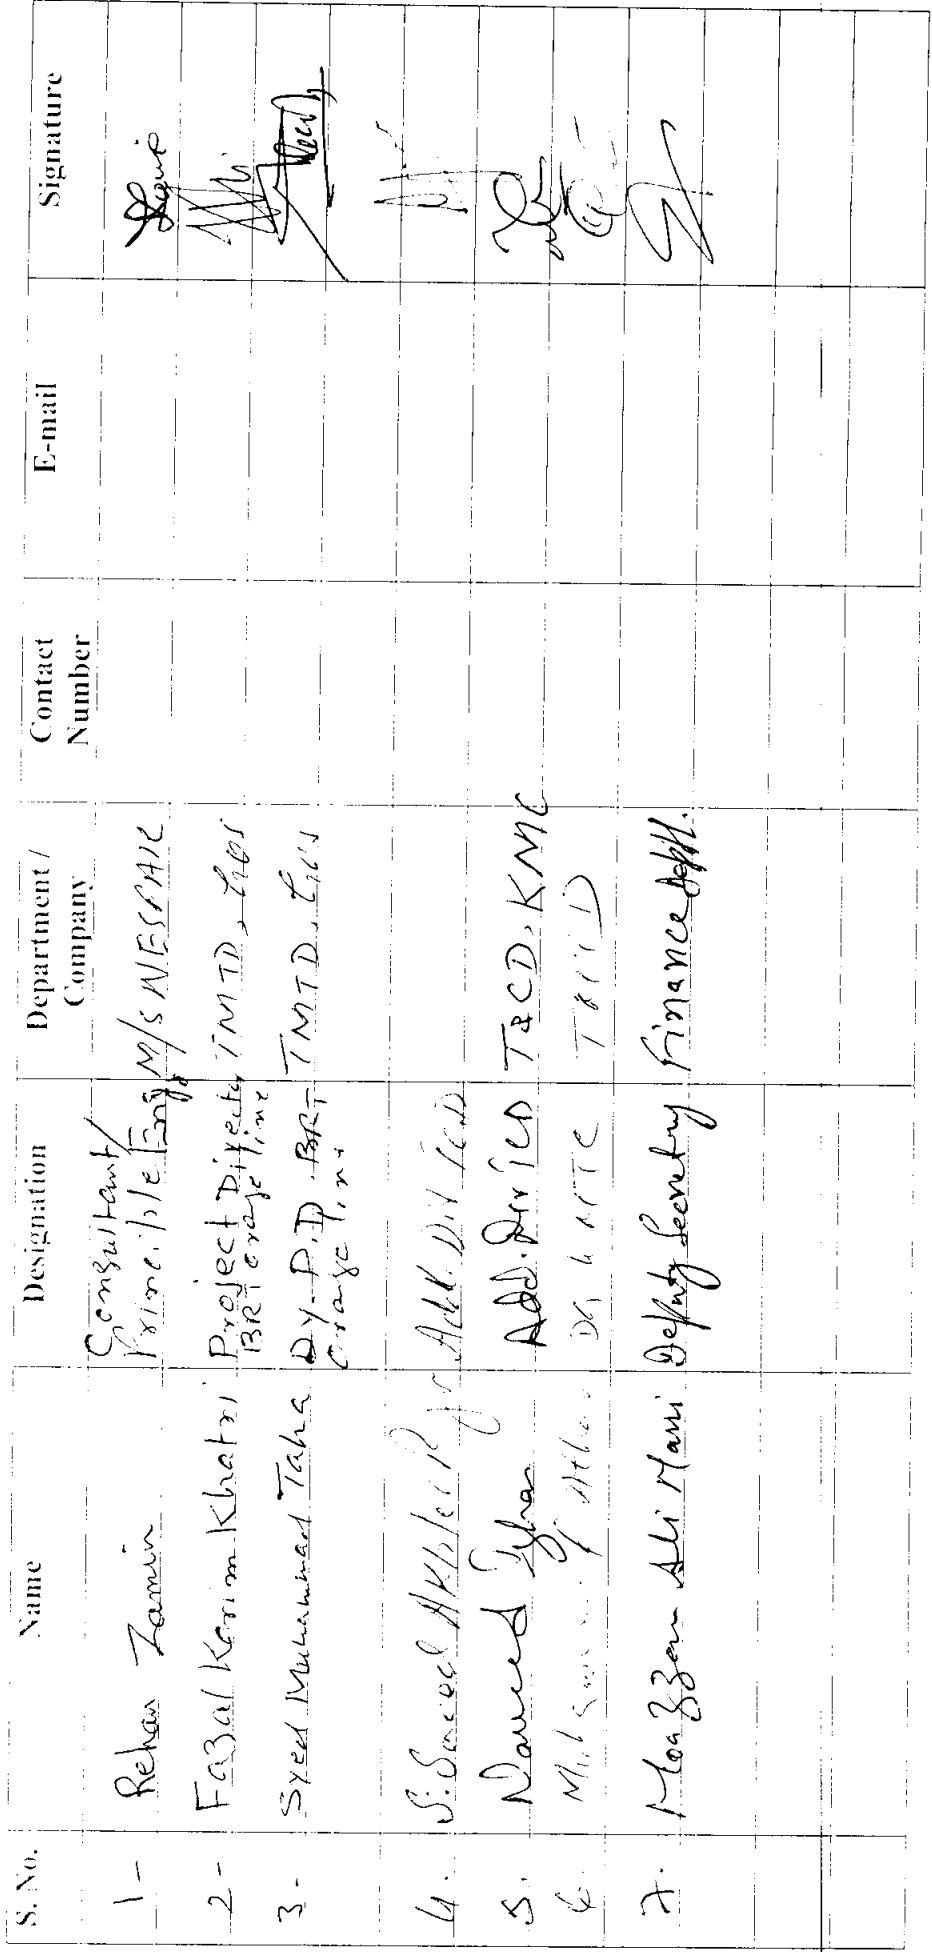 S. No. Name Designation Department / Company Contact Number E-mail Signature
1- Rehan Zamin Consultant/ Principle Eng. M/S NESPAK
2- Fazal Karim Khatri Project Director BRT Orange line TMTD, GOS
3- Syed Muhammad Taha Dy. P.D. BRT Orange line TMTD, GOS
4. S. Saeed Add. Dir TCD
5. Naveed Add. Dir TCD T&CD, KMC
6. Athar
7. Moazzam Ali Marri Deputy Secretary Finance deptt.